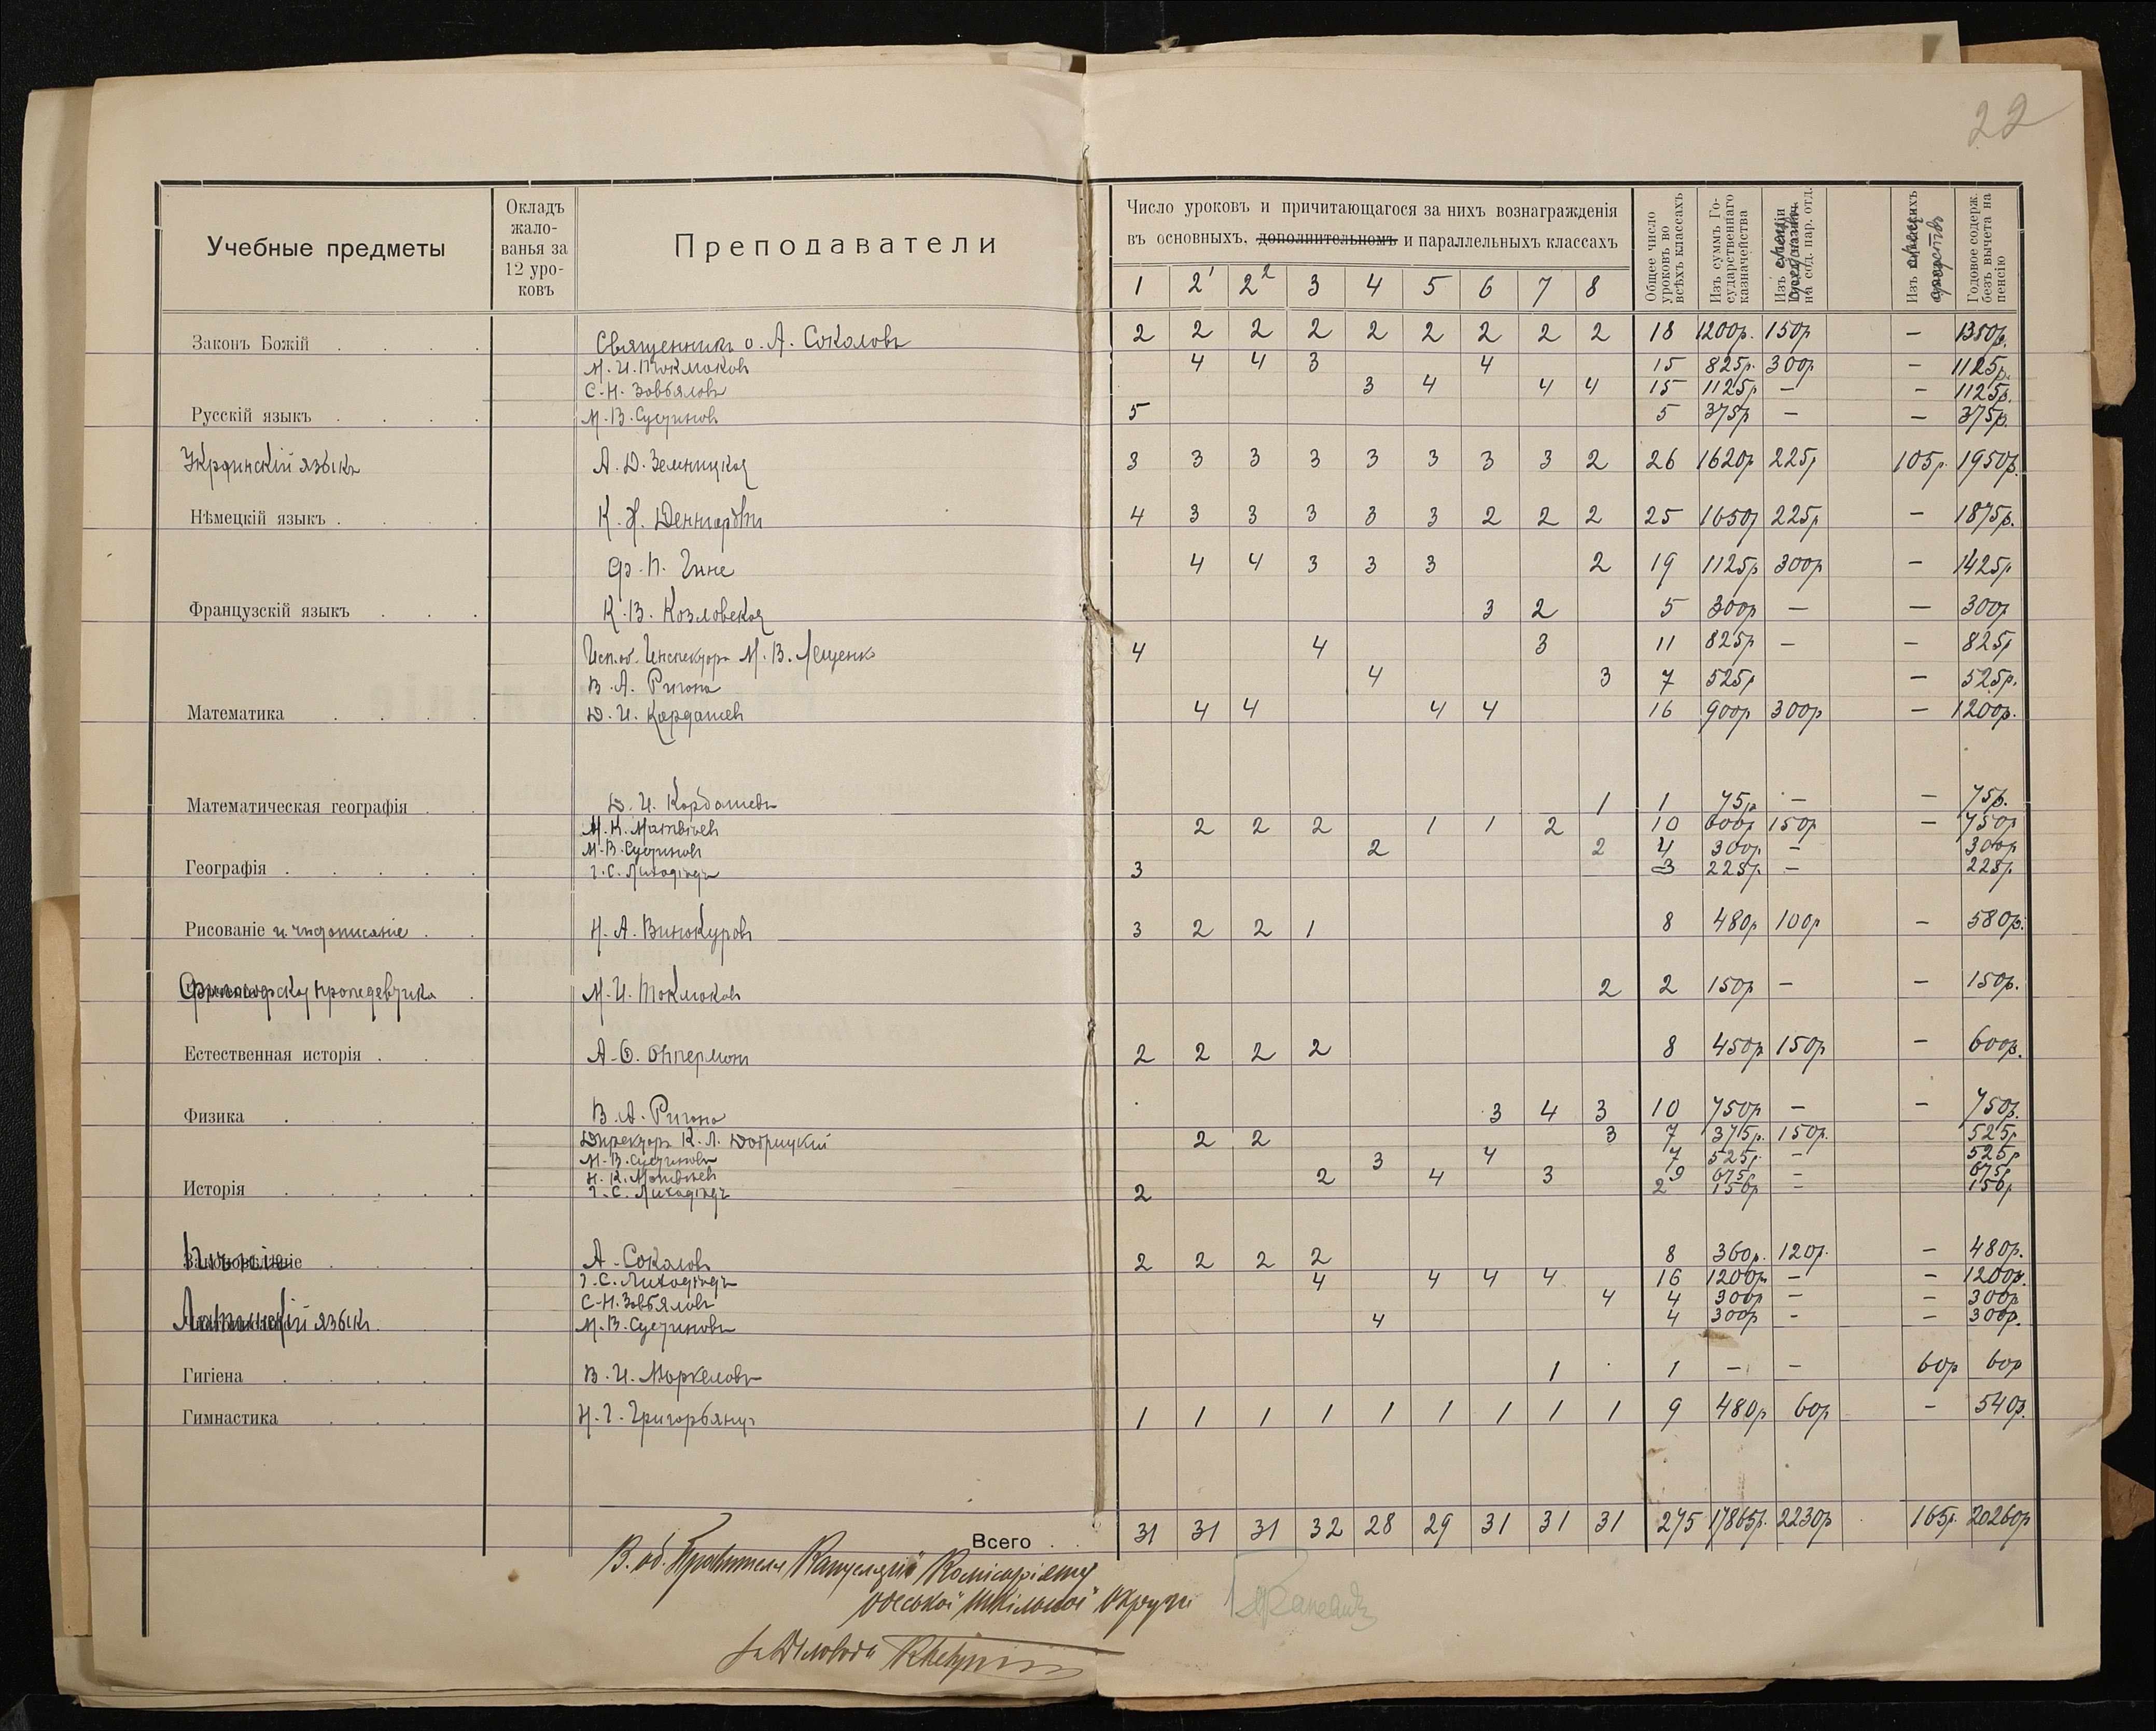 22
Учебные предметы | Окладъ жало-ванья за 12 уро-ковъ | Преподаватели | Число уроковъ и причитающагося за нихъ вознагражденія въ основныхъ, дополнительномъ и параллельныхъ классахъ | Общее число уроковъ во всѣхъ классахъ | Изъ суммъ Го-сударственнаго казначейства | Изъ на сод. пар. отд. | Изъ средствъ | Годовое содерж. безъ вычета на пенсію
1 2¹ 2² 3 4 5 6 7 8
Законъ Божій . . . . Священникъ о. А. Соколовъ 2 2 2 2 2 2 2 2 2 18 1200р. 150р — 1350р.
М. И. Токмаковъ 4 4 3 4 15 825р. 300р — 1125р.
С. Н. Зовбяловъ 3 4 4 4 15 1125р — — 1125р.
Русскій языкъ . . . . М. В. Сустиновъ 5 5 375р — — 375р.
Украинскій языкъ А. Д. Зелницкая 3 3 3 3 3 3 3 3 2 26 1620р 225р 105р. 1950р.
Нѣмецкій языкъ . . . . К. Денгардтъ 4 3 3 3 3 3 2 2 2 25 1650р 225р — 1875р.
Ф. П. Гине 4 4 3 3 3 2 19 1125р 300р — 1425р
Французскій языкъ . . . К. В. Козловская 3 2 5 300р — — 300р
Исп. об. Инспектора М. В. Лещенко 4 4 3 11 825р — — 825р
В. А. Ригона 4 3 7 525р — 525р.
Математика . . . . Д. И. Кардашевъ 4 4 4 4 16 900р 300р — 1200р.
Математическая географія . . Д. И. Кардашевъ 1 1 75р — — 75р.
М. К. Матвѣевъ 2 2 2 1 1 2 10 600р 150р — 750р
М. В. Сустиновъ 2 2 4 300р. — 300р
Географія . . . . . Г. С. Лиходѣдъ 3 3 225р. — 225р.
Рисованіе и чистописаніе . . Н. А. Винокуровъ 3 2 2 1 8 480р 100р — 580р.
Философская пропедевтика . М. И. Токмаковъ 2 2 150р — — 150р.
Естественная исторія . . А. Ѳ. Опперманъ 2 2 2 2 8 450р 150р — 600р.
Физика . . . . В. А. Ригона 3 4 3 10 750р — — 750р.
Директоръ К. Л. Добрицкій 2 2 3 7 375р. 150р. 525р
М. В. Сустиновъ 3 4 7 525р. — 525р
Н. К. Матвѣевъ 2 4 3 9 675р — 675р
Исторія . . . . . Г. С. Лиходѣдъ 2 2 150р — 150р
Пѣніе . . . . А. Соколовъ 2 2 2 2 8 360р. 120р. — 480р.
Г. С. Лиходѣдъ 4 4 4 4 16 1200р — — 1200р.
С. Н. Зовбяловъ 4 4 300р — — 300р
Латинскій языкъ М. В. Сустиновъ 4 4 300р — — 300р.
Гигіена . . . . В. И. Маркеловъ 1 1 — — 60р 60р
Гимнастика . . . Н. Г. Григорьянцъ 1 1 1 1 1 1 1 1 1 9 480р 60р — 540р.
Всего . . 31 31 31 32 28 29 31 31 31 275 17865р. 2230р 165р. 20260р
В. об. Правителя Канцелярії Комісаріяту
Одеської Шкільної Округи
За Діловода